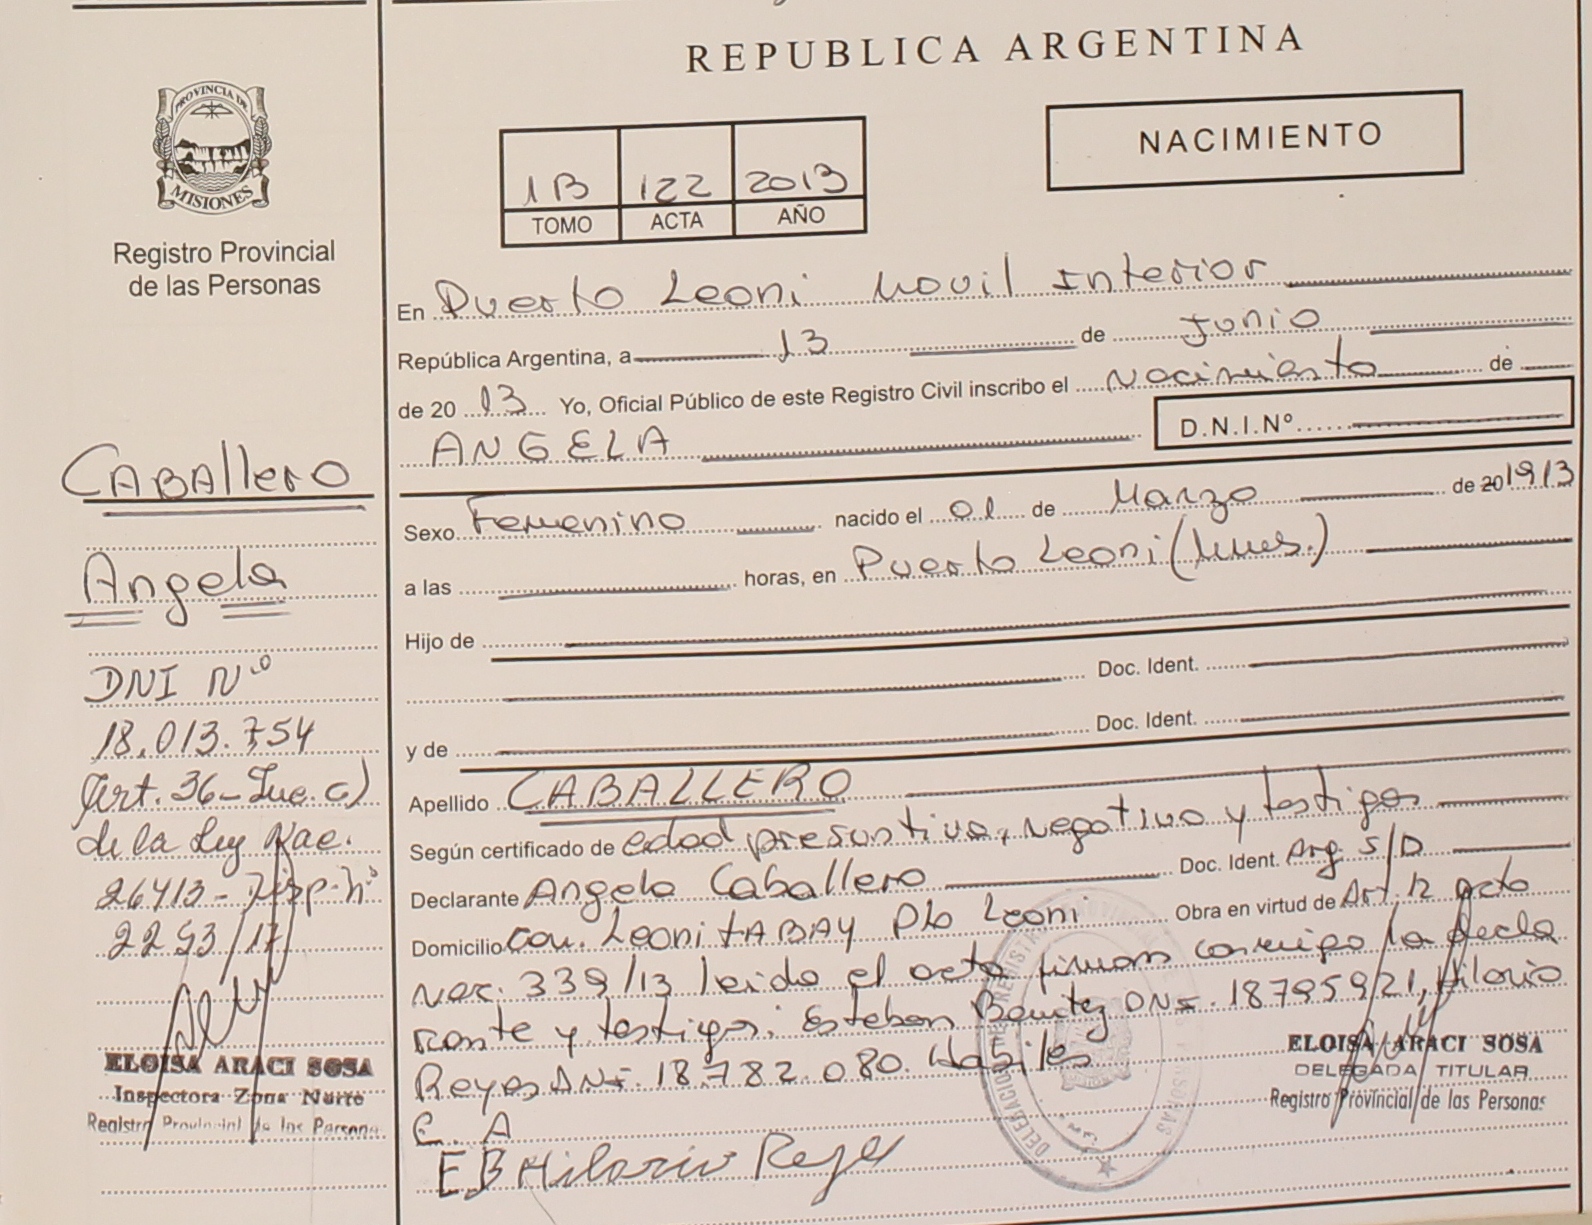 REPUBLICA ARGENTINA
PROVINCIA DE
MISIONES
Registro Provincial
de las Personas
NACIMIENTO
1B 122 2013
TOMO ACTA AÑO
En Puerto Leoni Movil Interior
República Argentina, a 13 de Junio
de 20 13 Yo, Oficial Público de este Registro Civil inscribo el Nacimiento de
ANGELA D.N.I.Nº
Sexo Femenino nacido el 01 de Marzo de 20 1913
a las horas, en Puerto Leoni (Mnes.)
Hijo de
Doc. Ident.
y de Doc. Ident.
Apellido CABALLERO
Según certificado de edad presuntiva, negativo y testigos
Declarante Angela Caballero Doc. Ident. Arg S/D
Domicilio con. Leoni TABAY Pto Leoni Obra en virtud de Art. 12 acto
339/13 leido el acta firman conmigo la decla
rante y testigos: Esteban Benitez DNI. 18795921, Hilario
Reyes DNI. 18.782.080. Habiles
C. A
EB Hilario Reyes
CABAllerO
Angela
DNI Nº
18.013.754
Art. 36- Inc. c)
de la Ley Nac.
26413- Disp. nº
2253/17
ELOISA ARACI SOSA
Inspectora Zona Norte
Registro Provincial de las Persona
ELOISA ARACI SOSA
DELEGADA TITULAR
Registro Provincial de las Personas